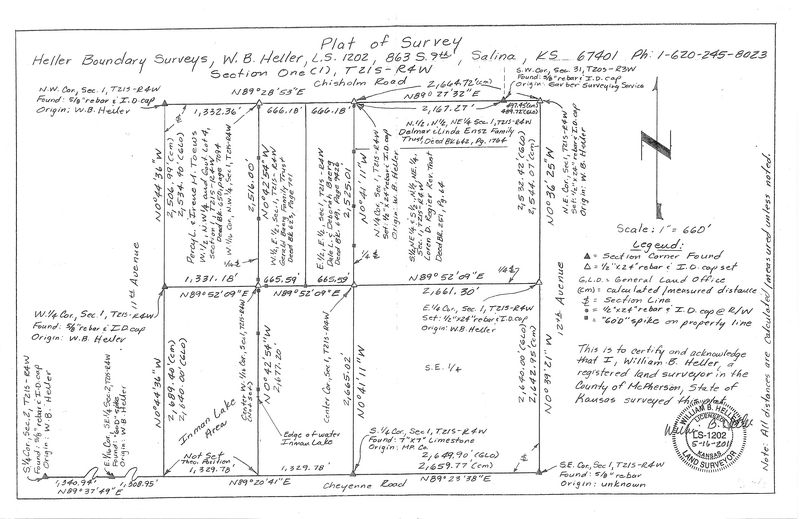 Plat of Survey
Heller Boundary Surveys, W. B. Heller, L.S. 1202, 863 S. 9th, Salina, KS 67401 Ph: 1-620-245-8023
Section One (1), T21S-R4W
Chisholm Road
N.W. Cor, Sec. 1, T21S-R4W
Found: 5/8" rebar & I.D. cap
Origin: W.B. Heller
N89°28'53"E
2,664.72' (cm)
N89°27'32"E
S.W. Cor, Sec. 31, T20S-R3W
Found: 5/8" rebar & I.D. cap
Origin: Garber Surveying Service
1,332.36'
666.18'
666.18'
2,167.27'
497.45 (cm)
N. 1/2, N. 1/2, NE 1/4 Sec. 1, T21S-R4W
Delmar & Linda Ensz Family
Trust, Deed BK 642, Pg. 1764
N0°44'36"W
2,506.99' (cm)
2,534.40' (GLO)
Percy L. & Irene M. Toews
W. 1/2, N.W. 1/4 and Gov't. Lot 4,
Section 1, T21S-R4W
Deed BK 650, page 7094
W. 1/16 Cor, N.W. 1/4, Sec. 1, T21S-R4W
2,516.00'
N0°42'54"W
W. 1/2, E. 1/2, Sec. 1, T21S-R4W
Gerald Baerg Family Trust
Deed BK 623, Page 701
E. 1/2, E. 1/2, Sec. 1, T21S-R4W
Dale L. & Deborah Baerg
2,525.01
N0°41'11"W
N. 1/4 Cor, Sec. 1, T21S-R4W
Set: 1/2"x24" rebar & I.D. cap
Origin: W. B. Heller
S. 1/2, NE 1/4 & S. 1/2, N. 1/2, NE. 1/4,
Sec. 1, T21S-R4W
Loren D. Regier Rev. Trust
Deed BK. 251, Pg. 64
2,532.42 (GLO)
2,544.07' (cm)
N0°36'25"W
N.E. Cor, Sec. 1, T21S-R4W
Set: 1/2"x24" rebar & I.D. cap
Origin: W.B. Heller
N
Scale: 1" = 660'
Legend:
▲ = Section Corner Found
△ = 1/2"x24" rebar & I.D. cap set
G.L.O = General Land Office
(cm) = calculated/measured distance
= Section Line
= 1/2"x24" rebar & I.D. cap @ R/W
= "60D" spike on property line
This is to certify and acknowledge
that I, William B. Heller, a
registered land surveyor in the
County of McPherson, State of
Kansas surveyed this plat.
WILLIAM B. HELLER
LICENSED
LS-1202
5-16-2011
KANSAS
LAND SURVEYOR
Note: All distances are calculated/measured unless noted.
11th Avenue
12th Avenue
1,331.18'
665.59'
665.59'
N89°52'09"E
N89°52'09"E
N89°52'09"E
1/4 th
2,661.30'
W. 1/4 Cor, Sec. 1, T21S-R4W
Found: 5/8" rebar & I.D. cap
Origin: W.B. Heller
E. 1/4 Cor, Sec. 1, T21S-R4W
Set: 1/2"x24" rebar & I.D. cap
Origin: W.B. Heller
S.E. 1/4
N0°44'36"W
2,689.40' (cm)
2,640.00 (GLO)
N0°42'54"W
2,677.20'
Center Cor, Sec. 1, T21S-R4W
2,665.02
N0°41'11"W
2,640.00' (GLO)
2,642.95 (cm)
N0°39'21"W
Inman Lake
Area
Edge of water
Inman Lake
S. 1/4 Cor, Sec. 2, T21S-R4W
Found: 5/8" rebar & I.D. cap
Origin: W.B. Heller
E. 1/16 Cor, SE 1/4 Sec. 2, T21S-R4W
Found: "60D" spike
Origin: W.B. Heller
Not Set
Theo. Position
1,329.78'
1,329.78'
S. 1/4 Cor, Sec. 1, T21S-R4W
Found: 7"x7" Limestone
Origin: M.P. Co.
2,649.90' (GLO)
2,659.77' (cm)
1,340.94'
1,308.95'
N89°37'49"E
N89°20'41"E
Cheyenne Road
N89°23'38"E
S.E. Cor, Sec. 1, T21S-R4W
Found: 5/8" rebar
Origin: unknown